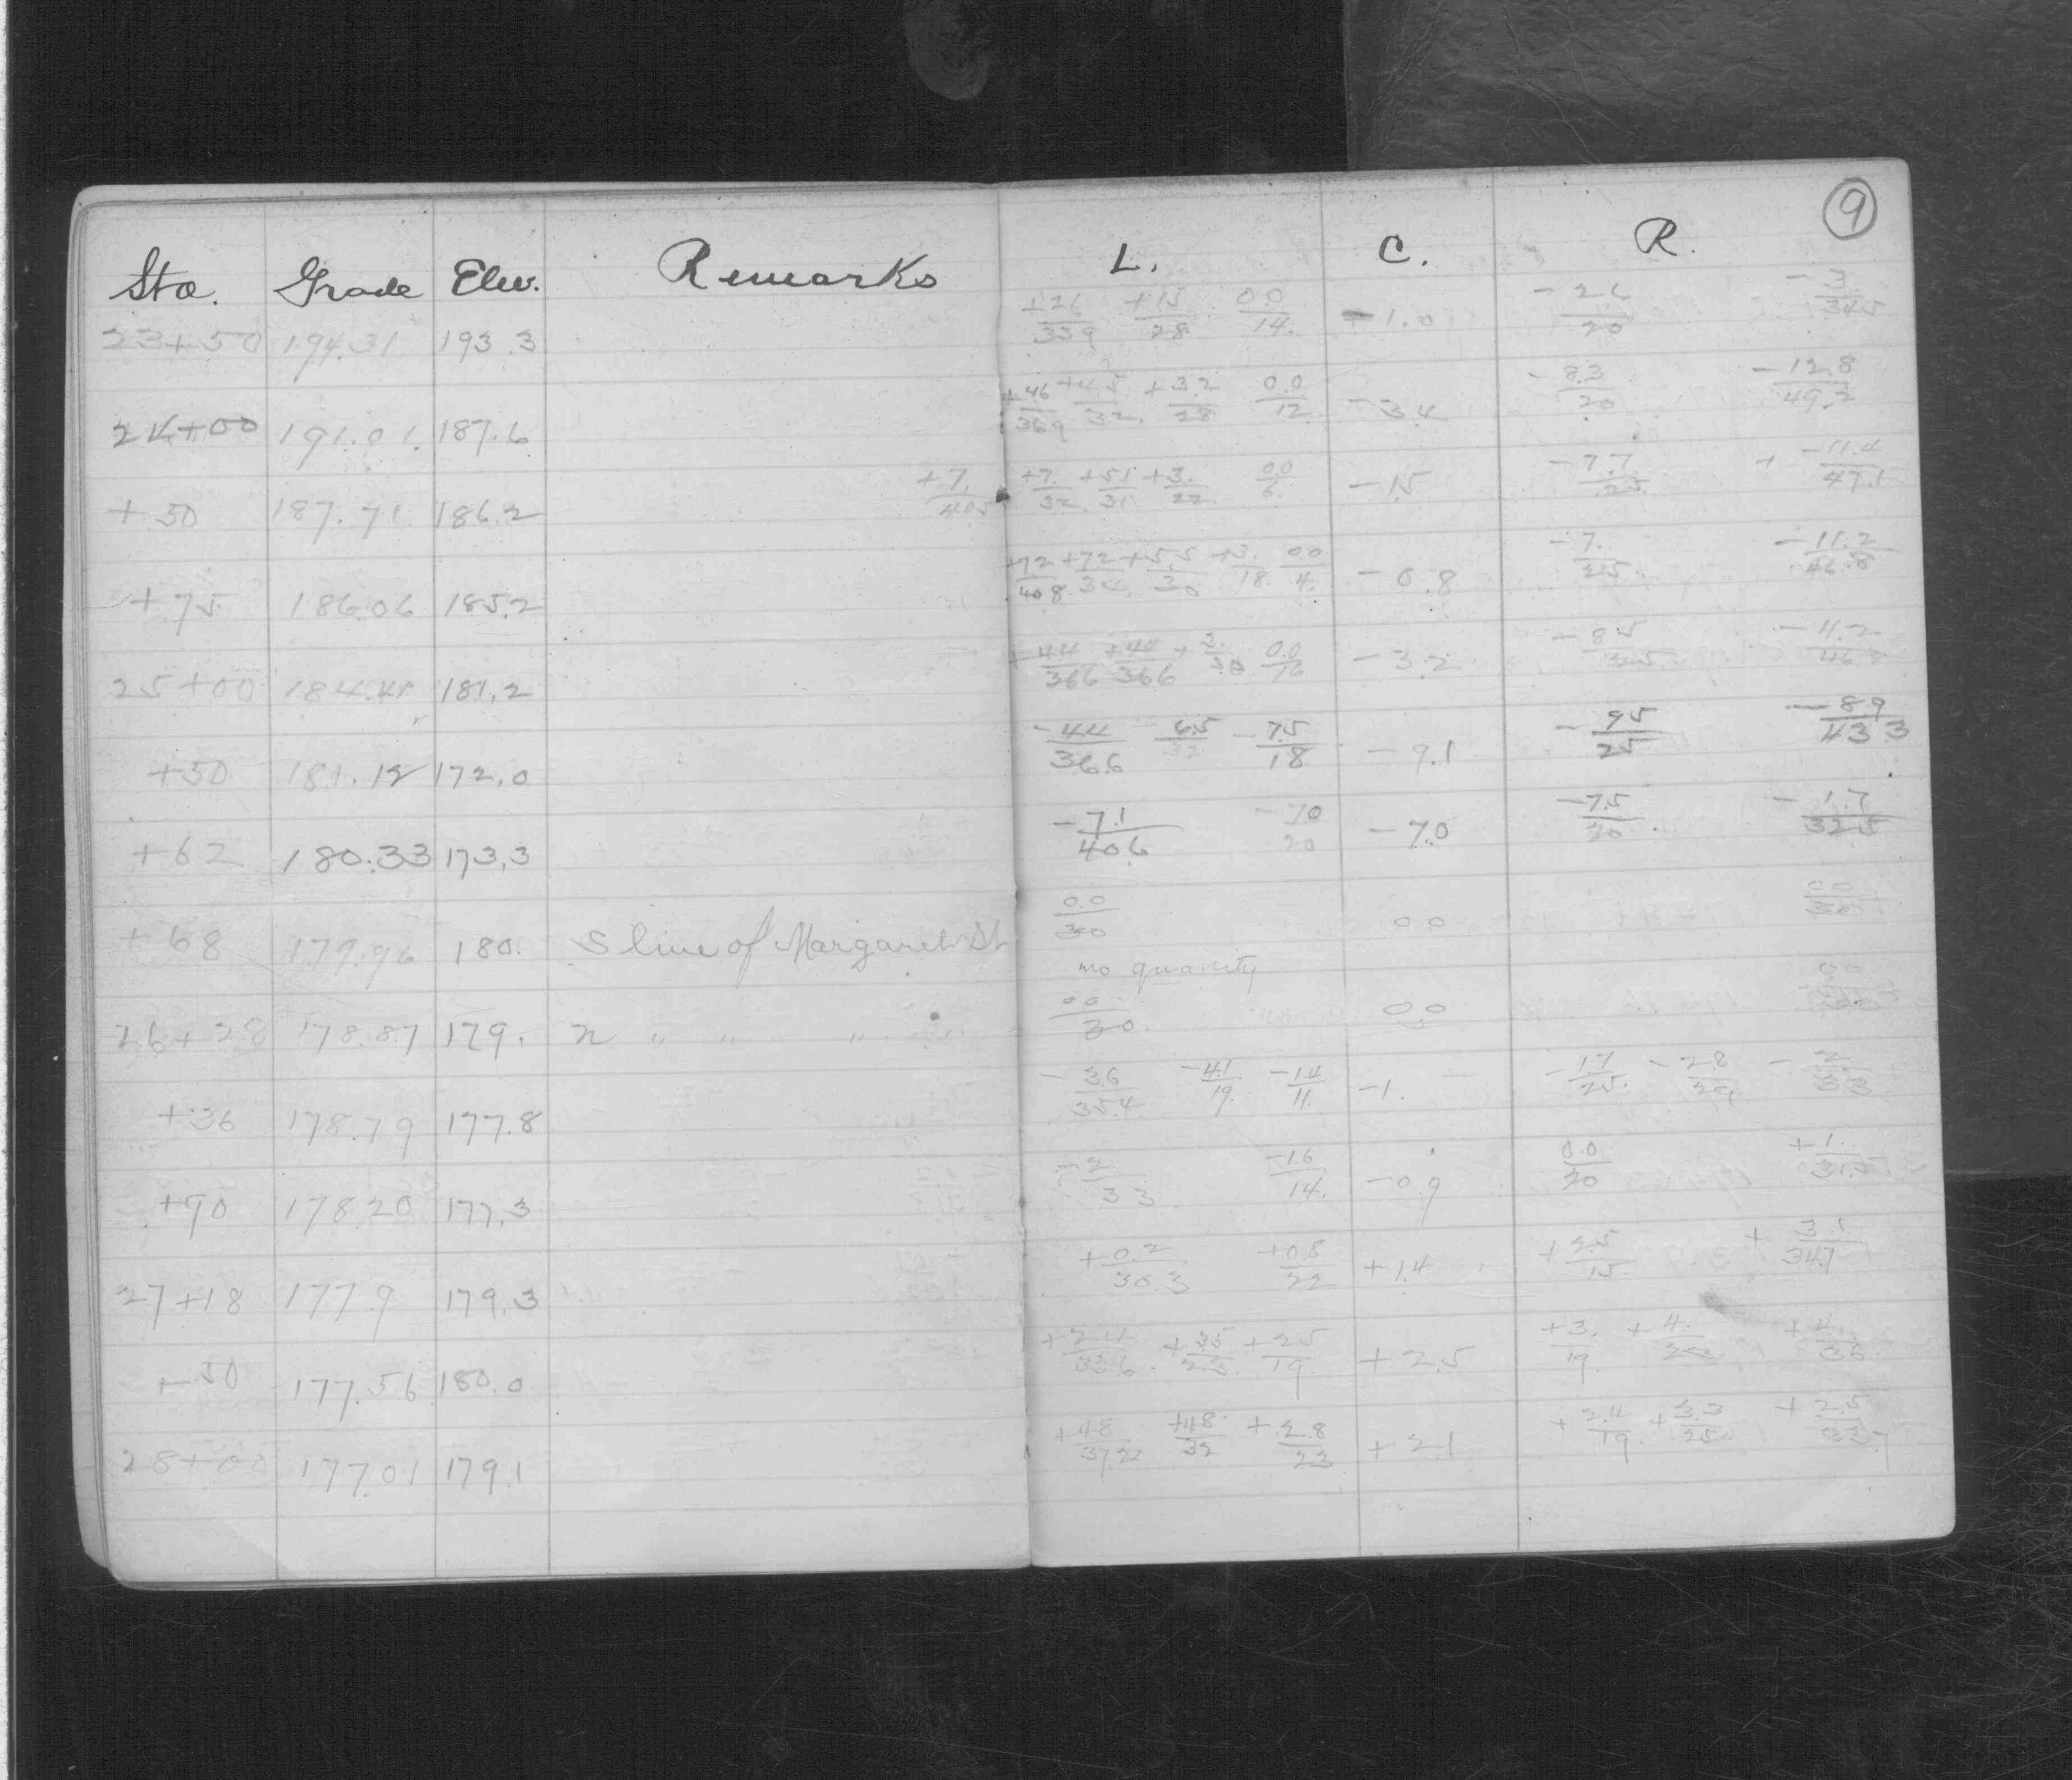 9
Sta. Grade Elev. Remarks L. C. R.
23+50 194.31 193.3 +2.6/33.9 +1.5/28 0.0/14. -1.0 -2.6/20 -3./34.5
24+00 191.01. 187.6 +4.6/36.9 +4.5/32. +3.2/28 0.0/12 -3.4 -8.3/20 -12.8/49.2
+50 187.71. 186.2 +7./40.5 +7./32. +5.1/31. +3./22. 0.0/6. -1.5 -7.7/25. -11.4/47.1
+75 186.06 185.2 +7.2/40.8 +7.2/34. +5.5/30 +3./18. 0.0/4. -0.8 -7./25. -11.2/46.8
25+00 184.41 181.2 +4.4/36.6 +4.4/36.6 0.0/16 -3.2 -8.5/32.5 -11.2/46.8
+50 181.12 172.0 -4.4/36.6 6.5/32 -7.5/18 -9.1 -9.5/25 -8.9/43.3
+62 180.33 173.3 -7.1/40.6 -7.0/20 -7.0 -7.5/20. -1.7/32.5
+68 179.96 180. S line of Margaret St 0.0/30 0.0 0.0/30
no quanity
26+28 178.87 179. N " " " 0.0/30. 0.0 0.0/30
+36 178.79 177.8 -3.6/35.4 -4.1/19. -1.4/11. -1. -1.7/25. -2.8/29 -2./33
+90 178.20 177.3 -2/33 -1.6/14. -0.9 0.0/20 +1./31.5
27+18 177.9 179.3 +0.2/30.3 +0.8/22 +1.4 +2.5/15. +3.1/34.7
+50 177.56 180.0 +2.4/33.6 +3.5/23. +2.5/19. +2.5 +3./19. +4./23 +4./36.
28+00 177.01 179.1 +4.8/37.2 +4.8/32 +2.8/23 +2.1 +2.4/19. +3.3/25. +2.5/33.7